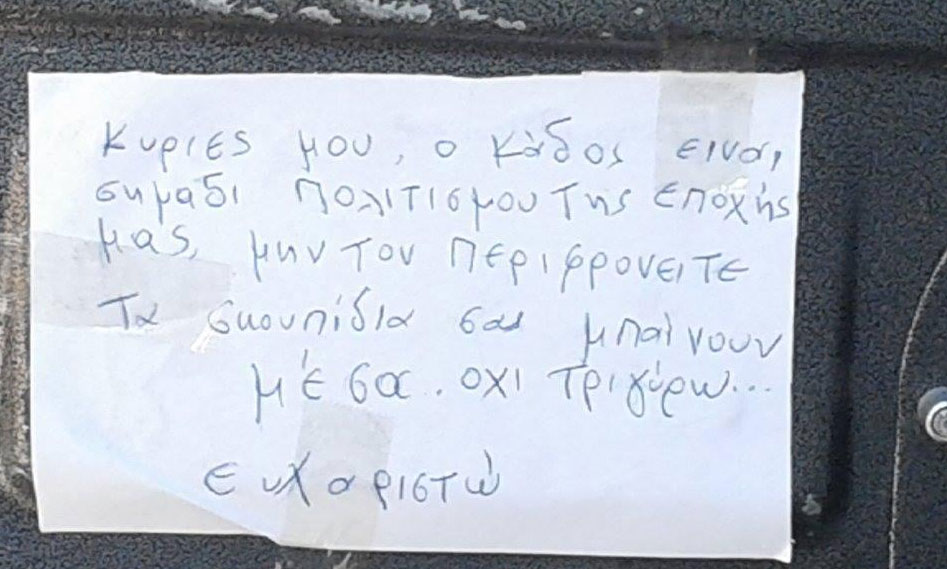 Κυριες μου, ο κάδος ειναι
σημάδι πολιτισμου της εποχής
μας, μην τον περιφρονειτε
Τα σκουπίδια σας μπαίνουν
μέσα. οχι τριγύρω...
ευχαριστώ